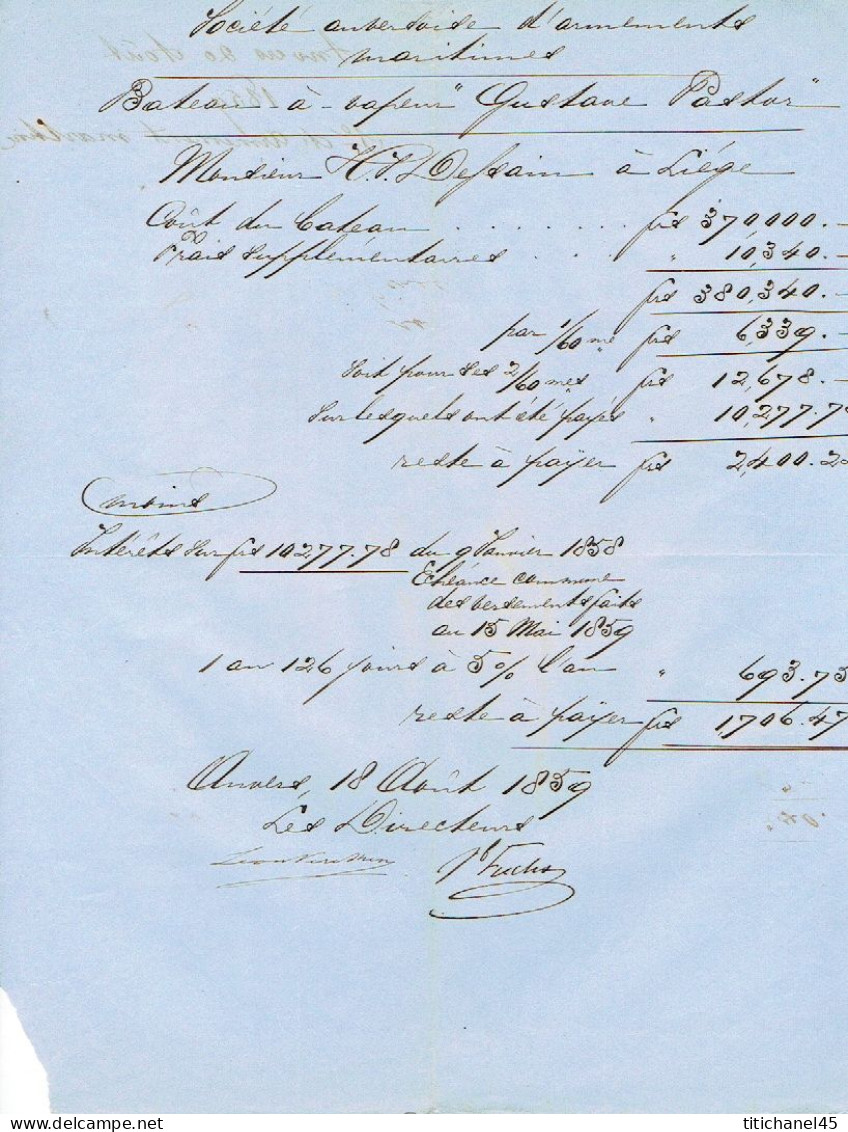 Société anversoise d'armements
maritimes
Bateau à-vapeur "Gustave Pastor"
Monsieur H. P. Dessain à Liége
Coût du bateau . . . . . . . . frs 370,000.—
Frais supplémentaires . . . " 10,340.—
frs 380,340.—
par 1/60 me frs 6,339.—
soit pour ses 2/60 mes frs 12,678.—
sur lesquels ont été payés " 10,277.78
reste à payer frs 2,400.22
moins
Intérêts sur frs 10277.78 du 9 Janvier 1858
Echéance commune
des versements faits
au 15 Mai 1859
1 an 126 jours à 5% l'an " 693.75
reste à payer frs 1,706.47
Anvers, 18 Août 1859
Les Directeurs
Fuchs
delcampe.net
titichanel45